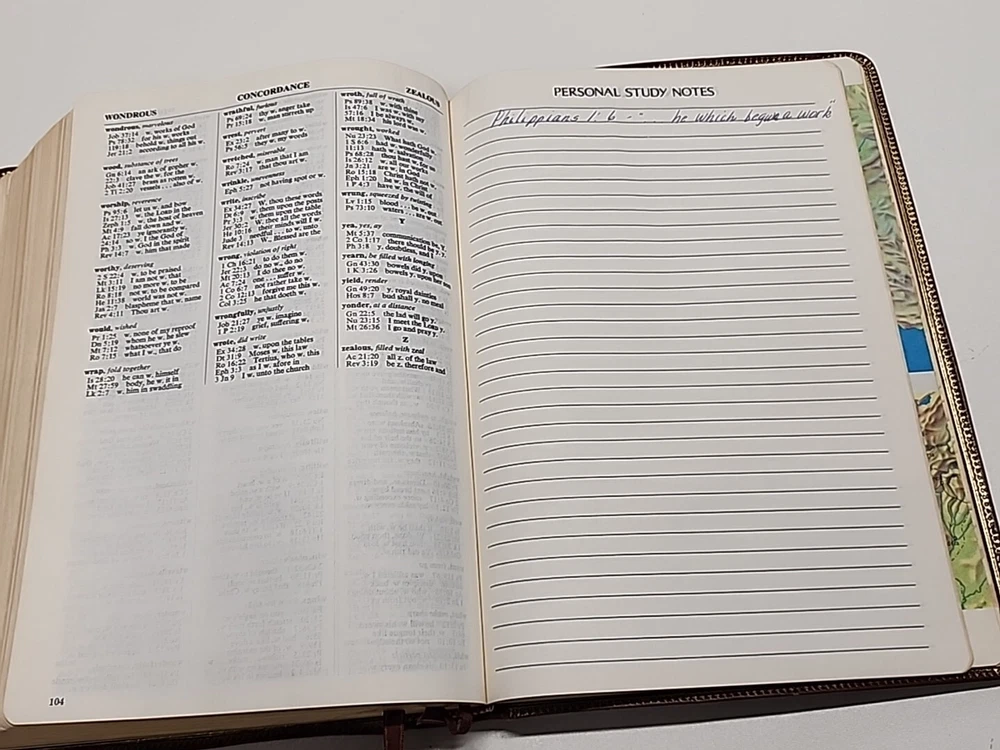 WONDROUS
CONCORDANCE
ZEALOUS
wondrous, marvelous
Job 37:14 w. works of God
Ps 78:32 for his w. works
119:18 behold w. things out
Jer 21:2 according to all his w.
wood, substance of trees
Gn 6:14 an ark of gopher w.
22:3 clave the w. for the
Job 41:27 brass as rotten w.
2 Ti 2:20 vessels . . . also of w.
worship, reverence
Ps 95:6 let us w. and bow
Is 27:13 w. the LORD in the
Zeph 1:5 w. the host of heaven
Mt 4:9 fall down and w.
Ac 17:23 ye ignorantly w.
24:14 so w. I the God of
Ph 3:3 w. God in the spirit
Rev 14:7 w. him that made
worthy, deserving
2 S 22:4 w. to be praised
Mt 3:11 I am not w. that
Lk 15:19 no more w. to be
Ro 8:18 not w. to be compared
He 11:38 world was not w.
Jas 2:7 blaspheme that w. name
Rev 4:11 Thou art w.
would, wished
Pr 1:25 w. none of my reproof
Dn 5:19 whom he w. he slew
Mt 7:12 whatsoever ye w.
Ro 7:15 what I w. that do
wrap, fold together
Is 28:20 he can w. himself
Mt 27:59 body, he w. it in
Lk 2:7 w. him in swaddling
wrathful, furious
Ps 69:24 thy w. anger take
Pr 15:18 w. man stirreth up
wrest, pervert
Ex 23:2 after many to w.
Ps 56:5 they w. my words
wretched, miserable
Ro 7:24 w. man that I am
Rev 3:17 that thou art w.
wrinkle, unevenness
Eph 5:27 not having spot or w.
write, inscribe
Ex 34:27 W. thou these words
Dt 6:9 w. them upon the posts
Pr 3:3 w. them upon the table
Jer 30:2 W. thee all the words
He 10:16 their minds will I w.
Jude 3 needful . . . to w. unto
Rev 14:13 W., Blessed are the
wrong, violation of right
1 Ch 16:21 to do them w.
Jer 22:3 do no w., do no
Mt 20:13 I do thee no w.
Ac 7:24 one . . . suffer w.
1 Co 6:7 not rather take w.
2 Co 12:13 forgive me this w.
Col 3:25 he that doeth w.
wrongfully, unjustly
Job 21:27 ye w. imagine
1 P 2:19 grief, suffering w.
wrote, did write
Ex 34:28 w. upon the tables
Dt 31:9 Moses w. this law
Ro 16:22 Tertius, who w. this
Eph 3:3 as I w. afore in
3 Jn 9 I w. unto the church
wroth, full of wrath
Ps 89:38 w. with
Is 47:6 I was w.
57:16 I be always w.
Mt 18:34 his lord was w.
wrought, worked
Nu 23:23 What hath God w.
1 S 6:6 had w.
11:13 hath w. salvation
Ps 68:28 thou hast w.
Is 26:12 w. all our works
Jn 3:21 are w. in God
Ro 15:18 Christ hath not w.
Eph 1:20 he w. in Christ
1 P 4:3 have w. the will
wrung, squeezed by twisting
Lv 1:15 blood . . . be w. out
Ps 73:10 waters
Y
yea, yes, ay
Mt 5:37 communication be, Y.
2 Co 1:17 there should be y.
Ph 3:8 y. doubtless, and I
yearn, be filled with longing
Gn 43:30 bowels did y. upon
1 K 3:26 bowels y. upon her son
yield, render
Gn 49:20 y. royal dainties
Hos 8:7 bud shall y. no meal
yonder, at a distance
Gn 22:5 the lad will go y.
Nu 23:15 I meet the LORD y.
Mt 26:36 I go and pray y.
Z
zealous, filled with zeal
Ac 21:20 all z. of the law
Rev 3:19 be z. therefore and
104
PERSONAL STUDY NOTES
Philippians 1:6 -" . . . he which begun a work"